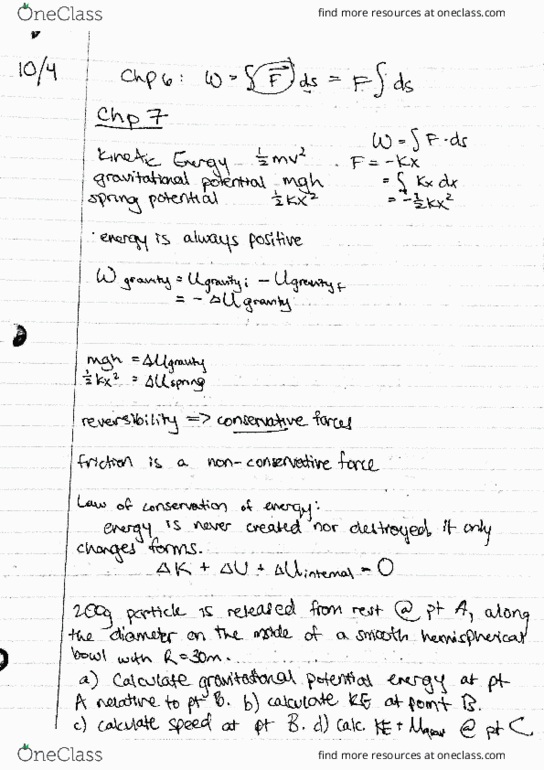 OneClass
find more resources at oneclass.com
10/4
Chp 6: W = ∫(F⃗) ds = F ∫ ds
Chp 7
W = ∫ F · ds
Kinetic Energy ½mv² . F = -Kx
gravitational potential mgh = ∫ Kx dx
spring potential ½Kx² = -½Kx²
· energy is always positive
W gravity = Ugravity i - Ugravity f
= - ΔU gravity
mgh = ΔUgravity
½Kx² = ΔUspring
reversibility => conservative forces
friction is a non-conservative force
Law of conservation of energy:
energy is never created nor destroyed, it only
changes forms.
ΔK + ΔU + ΔUinternal = 0
200g particle is released from rest @ pt A, along
the diameter on the inside of a smooth hemispherical
bowl with R=30m.
a) Calculate gravitational potential energy at pt
A relative to pt B. b) calculate KE at point B.
c) calculate speed at pt B. d) calc. KE + Ugrav @ pt C
OneClass
find more resources at oneclass.com